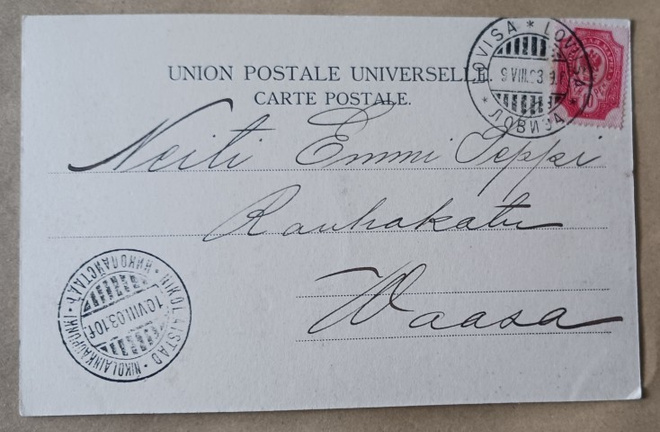 UNION POSTALE UNIVERSELLE.
CARTE POSTALE.
LOVISA * LOVIISA * ЛОВИЗА *
9.VIII.03
10
Neiti Emmi Seppi
Rauhakatu
Waasa
NIKOLAISTAD · NIKOLAINKAUPUNKI · НИКОЛАЙСТАДТЪ
10.VIII.03.10F